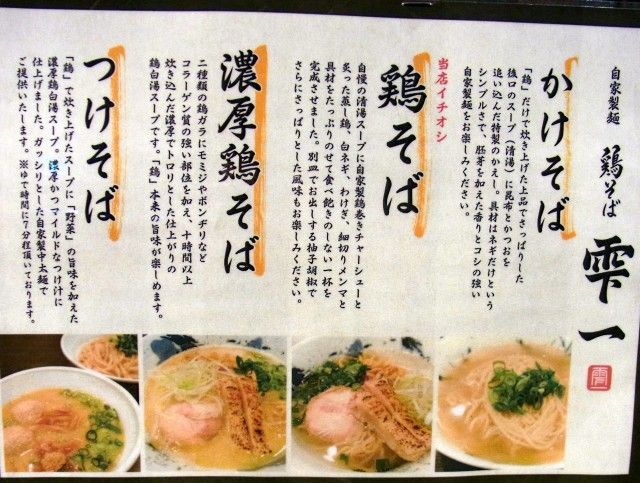 自家製麺
鶏そば
雫一
かけそば
「鶏」だけで炊き上げた上品でさっぱりした
後口のスープ(清湯)に昆布とかつおを
追い込んだ特製のかえし。具材はネギだけという
シンプルさで、胚芽を加えた香りとコシの強い
自家製麺をお楽しみください。
当店イチオシ
鶏そば
自慢の清湯スープに自家製鶏巻きチャーシューと
炙った蒸し鶏、白ネギ、わけぎ、細切りメンマと
具材をたっぷりのせて食べ飽きのしない一杯を
完成させました。別皿でお出しする柚子胡椒で
さらにさっぱりとした風味もお楽しみください。
濃厚鶏そば
二種類の鶏ガラにモミジやボンヂリなど
コラーゲン質の強い部位を加え、十時間以上
炊き込んだ濃厚でトロリとした仕上がりの
鶏白湯スープです。「鶏」本来の旨味が楽しめます。
つけそば
「鶏」で炊き上げたスープに「野菜」の旨味を加えた
濃厚鶏白湯スープ。濃厚かつマイルドなつけ汁に
仕上げました。ガッシリとした自家製中太麺で
ご提供いたします。※ゆで時間に7分程頂いております。